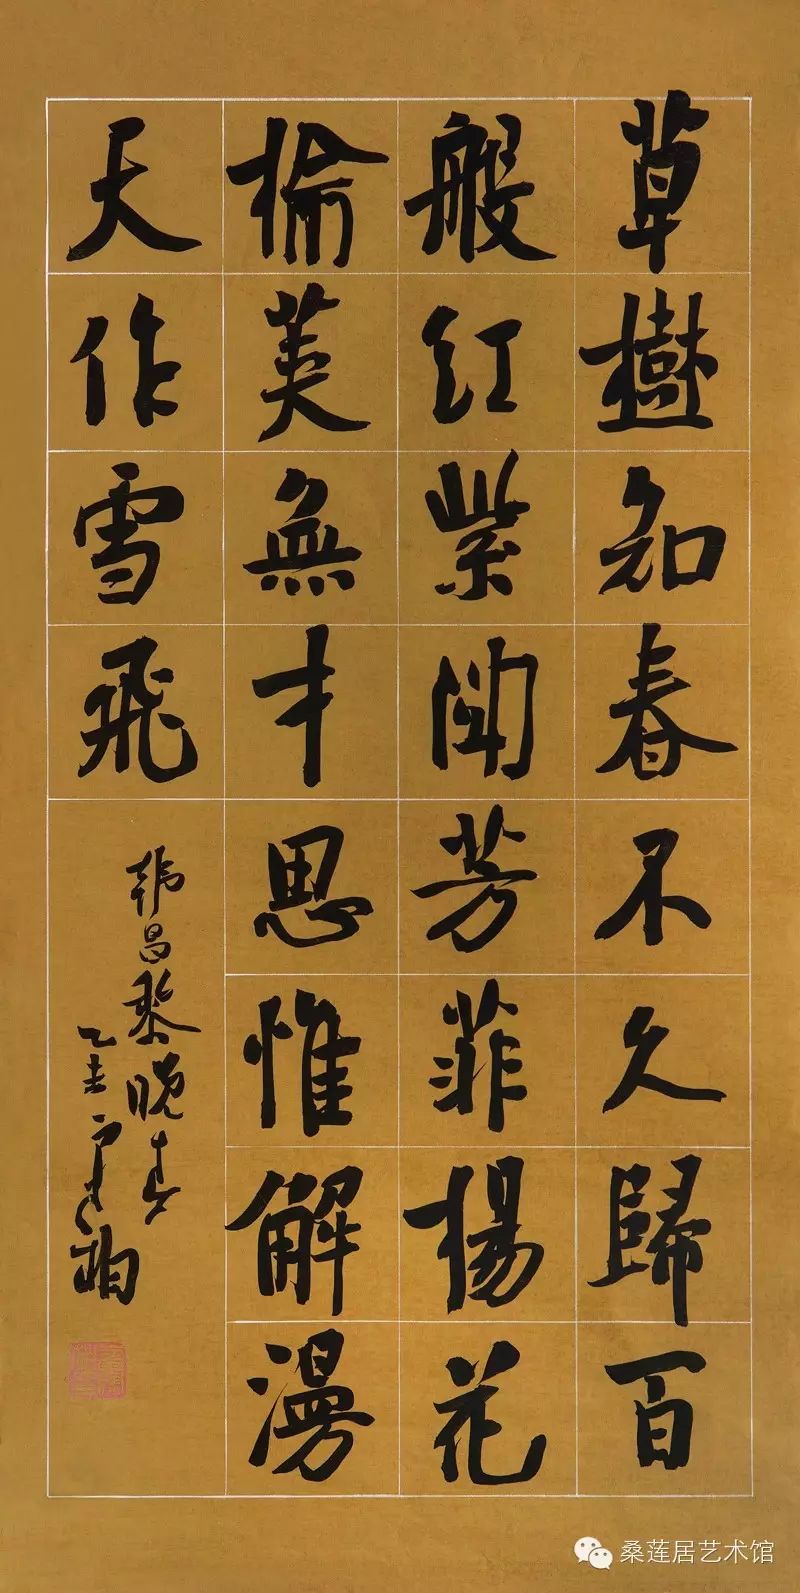 草樹知春不久歸百
般紅紫鬥芳菲楊花
榆莢無才思惟解漫
天作雪飛
韓昌黎晚春
桑莲居艺术馆